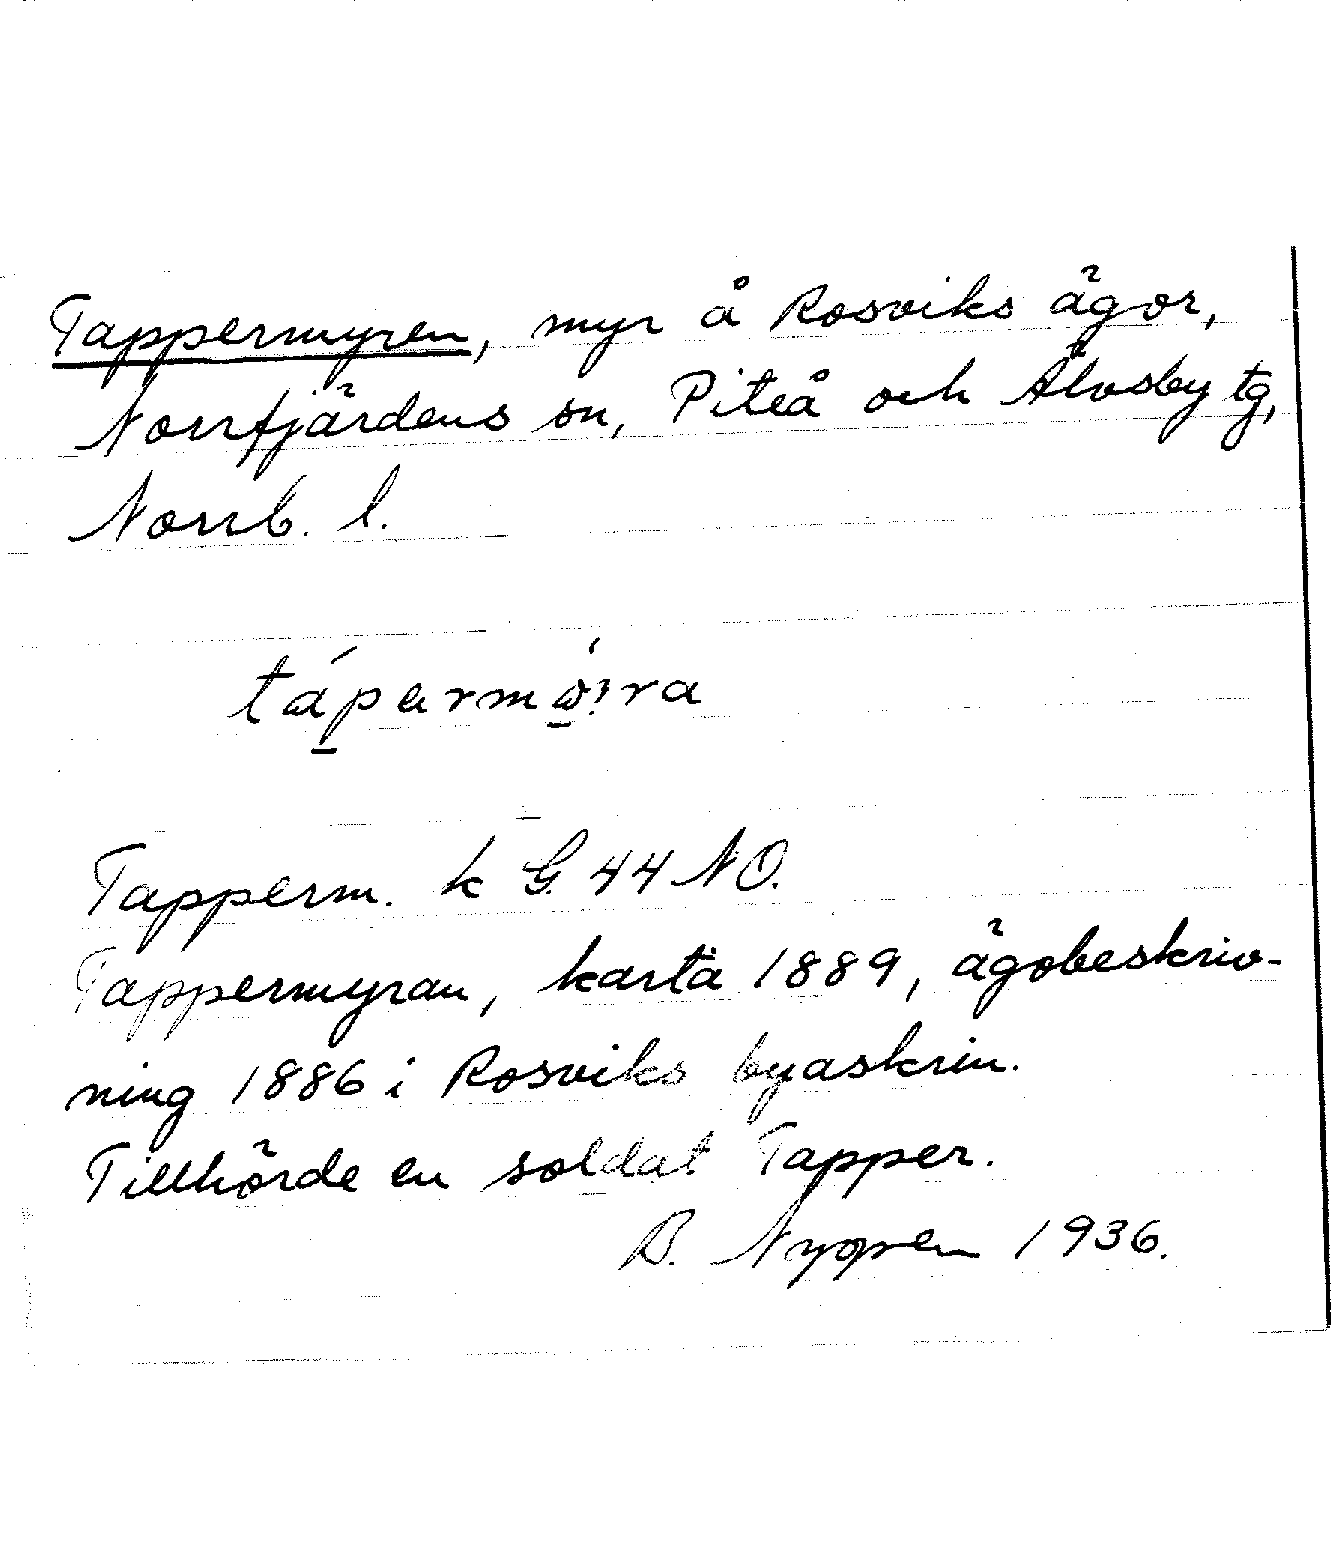 Tappermyren, myr å Rosviks ägor,
Norrfjärdens sn, Piteå och Älvsby tg,
Norrb. l.
tápermø̀ira
Tapperm. k G. 44 NO.
Tappermyran, karta 1889, ägobeskriv-
ning 1886 i Rosviks byaskrin.
Tillhörde en soldat Tapper.
B. Nygren 1936.